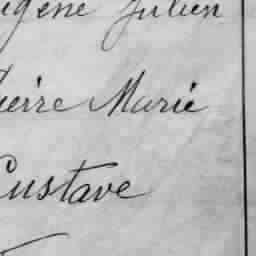 ugène Julien
ierre Marie
Gustave